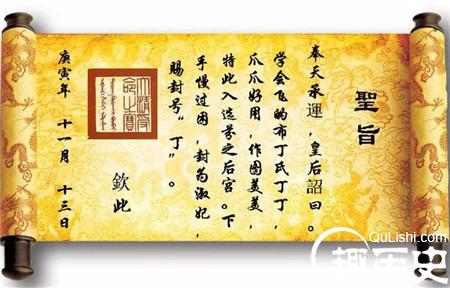 聖旨
奉天承運,皇后詔曰。
学会飞的布丁氏丁丁,
爪爪好用,作图美美,
特此入选芬之后宫。下
手慢过困,封为淑妃,
赐封号“丁”。
欽此
大清受命之寶
庚寅年 十一月 十三日
QuLishi.com
趣历史